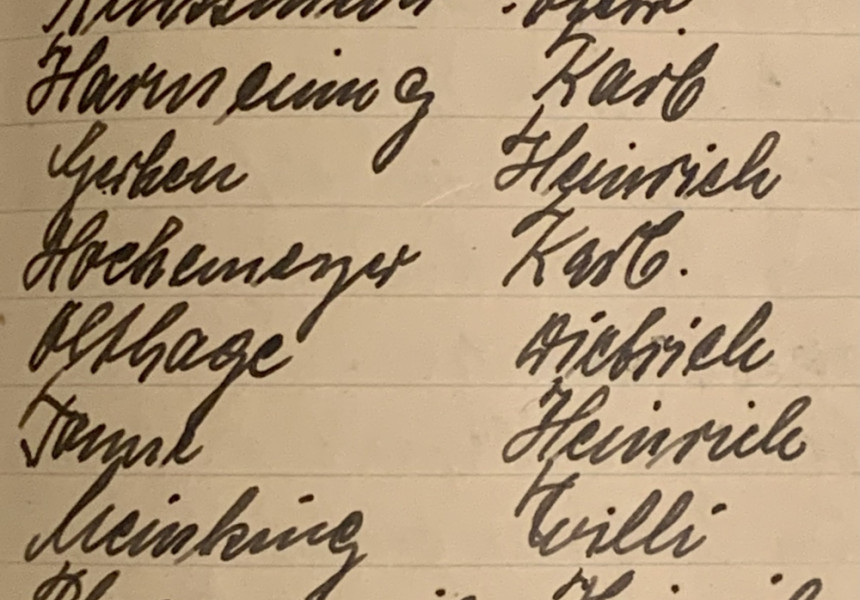 Harmening Karl
Gerken Heinrich
Hochemeyer Karl.
Ohlhage Dietrich
Tonne Heinrich
Meinking Willi